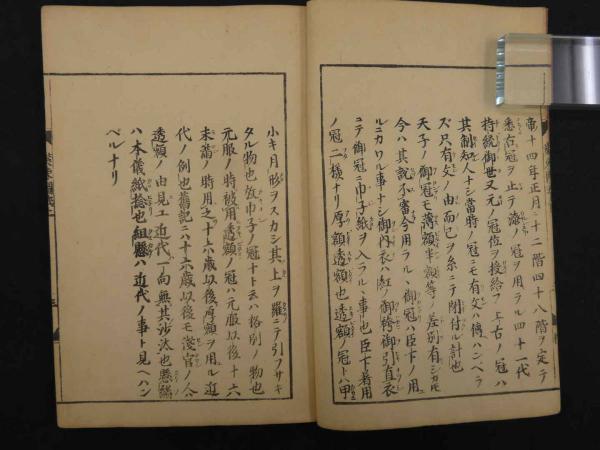 竜十四年正月ニ十二階四十八階ヲ定テ
悉古冠ヲ止テ漆ノ冠ヲ用ラル四十一代
持統御世又元ノ冠位ヲ授給フ上古ノ冠ハ
其制知人ナシ當時ノ冠ニモ有文ハ傳ハンベラ
ズ只有文ノ由而已ヲ糸ニテ閉付ル計也
天子ノ御冠モ薄額半額等ノ差別有シカ𪜈
今ハ其説不審今用ラル、御冠ハ臣下ノ用
ルニカワル事ナシ御内衣ハ紅ノ御袴御引直衣
ニテ御冠ニ巾子紙ヲ入ラル、事也臣下着用
ノ冠二様ナリ厚額透額也透額ノ冠トハ甲
小キ月形ヲスカシ其上ヲ羅ニテ引フサキ
タル物也放巾子ノ冠ナト云ハ格別ノ物也
元服ノ時被用透額ノ冠ハ元服以後十六
未萬ノ時用之十六歳以後厚額ヲ用ル近
代ノ例也舊記ニハ十六歳以後モ淺官ノ人
透額ノ由見エ近代ノ向無其沙汰也懸緒
ハ本儀紙捻也組懸ハ近代ノ事ト見ヘハン
ベルナリ